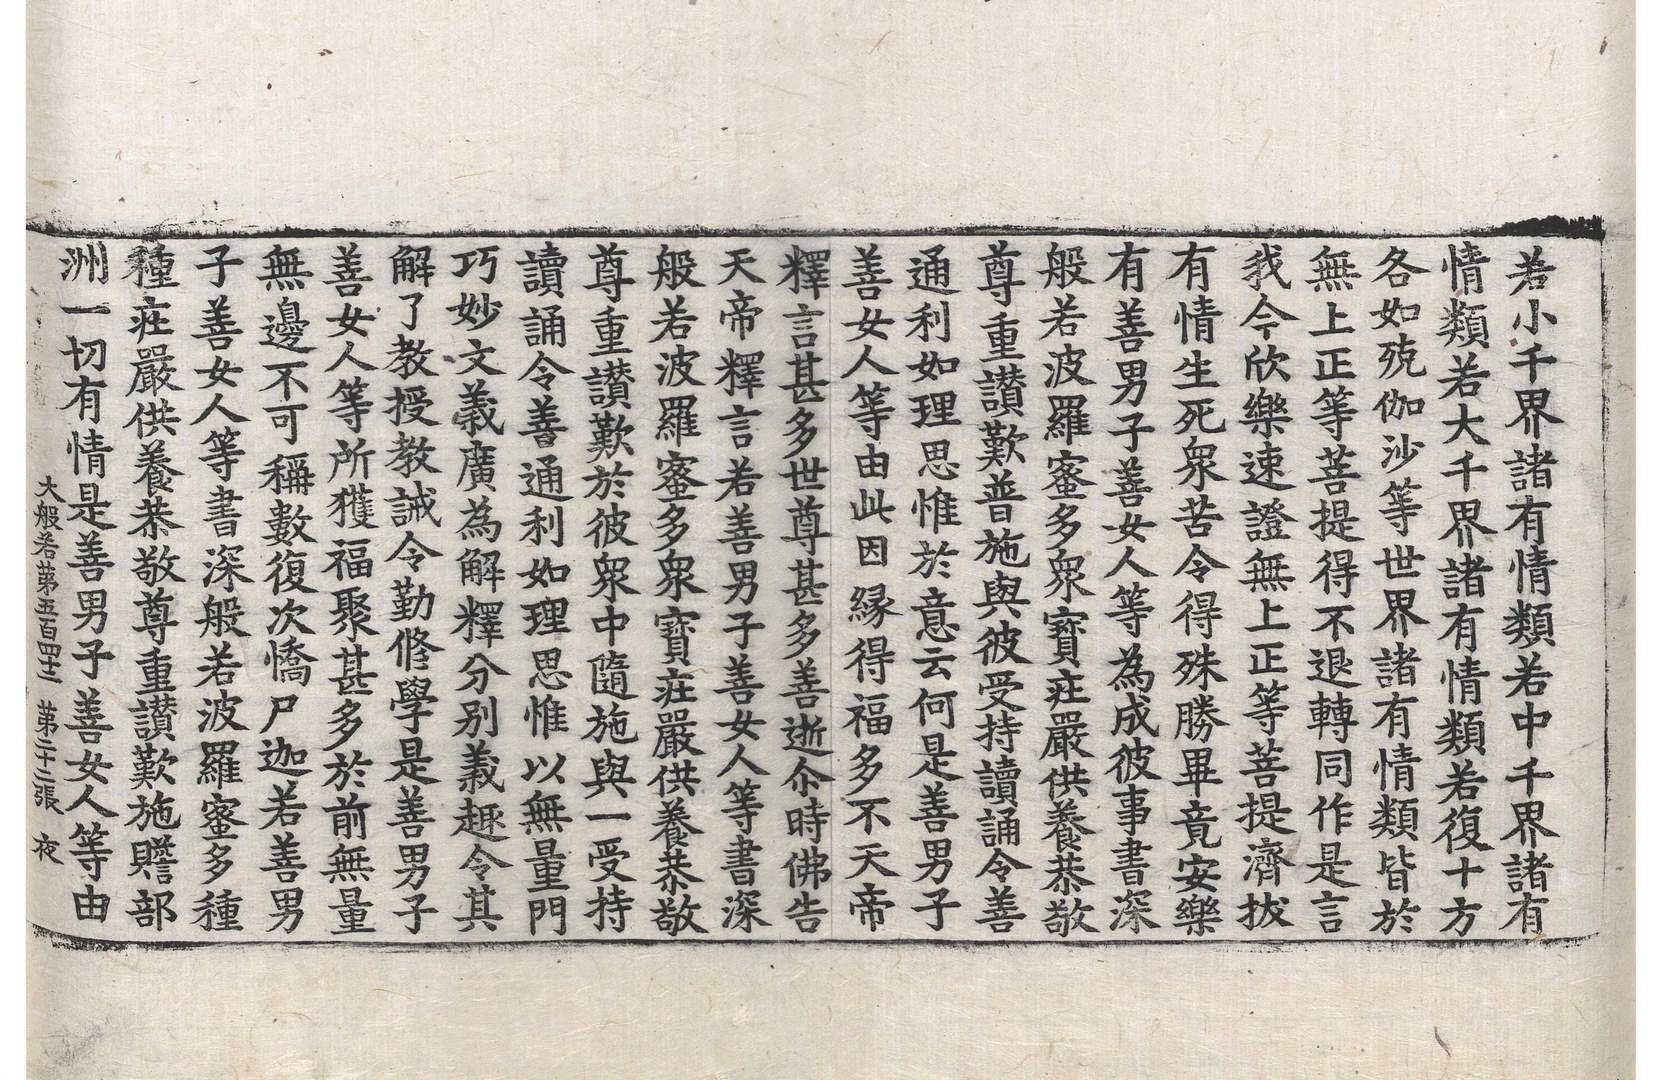 若小千界諸有情類若中千界諸有
情類若大千界諸有情類若復十方
各如殑伽沙等世界諸有情類皆於
無上正等菩提得不退轉同作是言
我今欣樂速證無上正等菩提濟拔
有情生死衆苦令得殊勝畢竟安樂
有善男子善女人等為成彼事書深
般若波羅蜜多衆寳庄嚴供養恭敬
尊重讃歎普施與彼受持讀誦令善
通利如理思惟於意云何是善男子
善女人等由此因縁得福多不天帝
釋言甚多世尊甚多善逝尒時佛告
天帝釋言若善男子善女人等書深
般若波羅蜜多衆寳庄嚴供養恭敬
尊重讃歎於彼衆中隨施與一受持
讀誦令善通利如理思惟以無量門
巧妙文義廣為解釋分別義趣令其
解了教授教誡令勤修學是善男子
善女人等所獲福聚甚多於前無量
無邊不可稱數復次憍尸迦若善男
子善女人等書深般若波羅蜜多種
種庄嚴供養恭敬尊重讃歎施贍部
洲一切有情是善男子善女人等由
大般若第五百四十二　第二十二張　夜